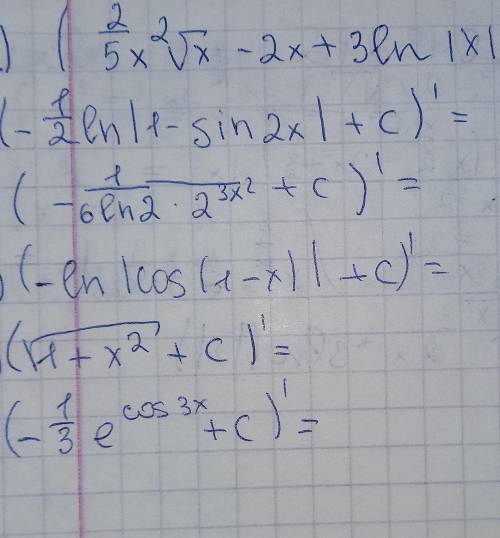 ) ( 2/5 x²√x - 2x + 3ln |x|
(- 1/2 ln|1 - sin 2x| + c)' =
(- 1/(6ln2 · 2^(3x²)) + c)' =
) (-ln |cos(1-x)| + c)' =
(√(1 + x²) + c)' =
(- 1/3 e^(cos 3x) + c)' =